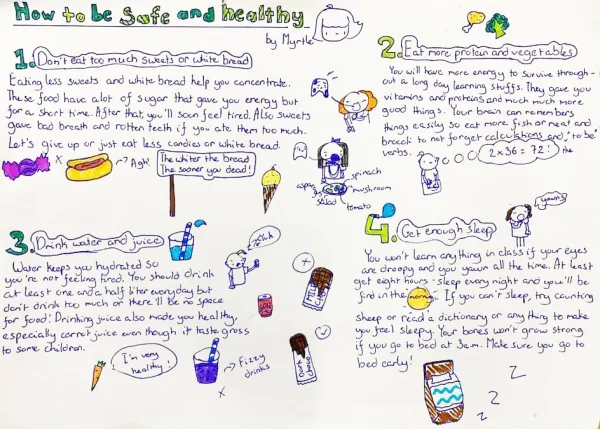 How to be Safe and healthy
by Myrtle
1. Don't eat too much sweets or white bread
Eating less sweets and white bread help you concentrate.
These food have a lot of sugar that gave you energy but
for a short time. After that, you'll soon feel tired. Also sweets
gave bad breath and rotten teeth if you ate them too much.
Let's give up or just eat less candies or white bread.
x
Agh!
The whiter the bread
The sooner you dead!
spinach
mushroom
tomato
salad
2. Eat more protein and vegetables
You will have more energy to survive through-
out a long day learning stuffs. They gave you
vitamins and proteins and much much more
good things. Your brain can remembers
things easily so eat more fish or meat and
brocoli to not forget calculations and "to be"
verbs.
2 x 36 = 72!
the
3. Drink water and juice
Water keeps you hydrated so
you're not feeling tired. You should drink
at least one and a half liter everyday but
don't drink too much or there'll be no space
for food! Drinking juice also made you healthy,
especially carrot juice even though it taste gross
to some children.
I'm very
healthy!
Fizzy
drinks
x
x
4. Get enough sleep
yawns
You won't learn anything in class if your eyes
are droopy and you yawn all the time. At least
get eight hours-sleep every night and you'll be
find in the morning. If you can't sleep, try counting
sheep or read a dictionary or anything to make
you feel sleepy. Your bones won't grow strong
if you go to bed at 3a.m. Make sure you go to
bed early!
z
z
z